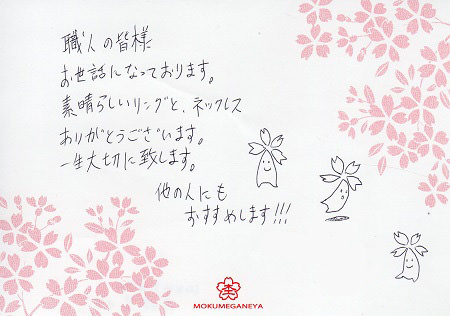 職人の皆様
お世話になっております。
素晴らしいリングと、ネックレス
ありがとうございます。
一生大切に致します。
他の人にも
おすすめします!!!
MOKUMEGANEYA